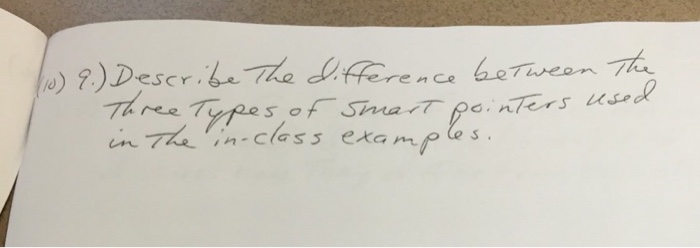 (10) 9.) Describe The difference between The
Three Types of Smart pointers used
in The in-class examples.